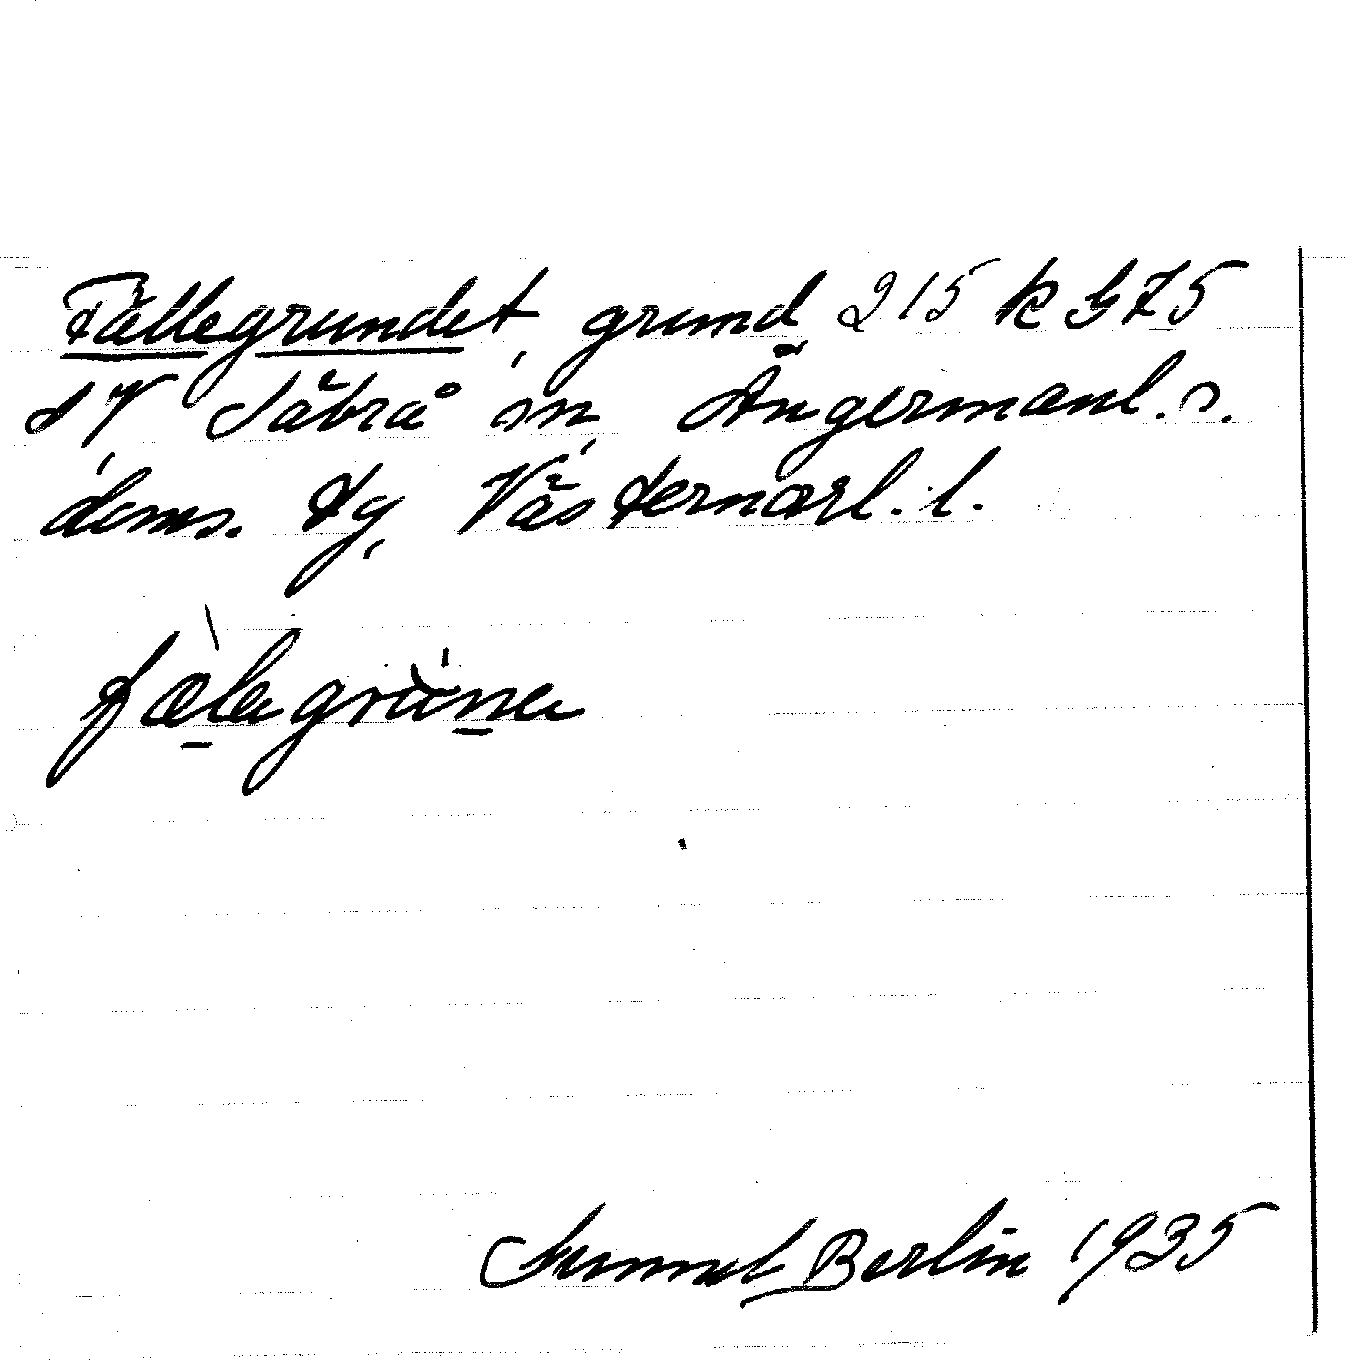 Fällegrundet, grund 215 k G 75
SV Säbrå sn, Ångermanl. s.
doms. tg, Västernorrl. l.
fælegruna
Gunnel Berlin 1935